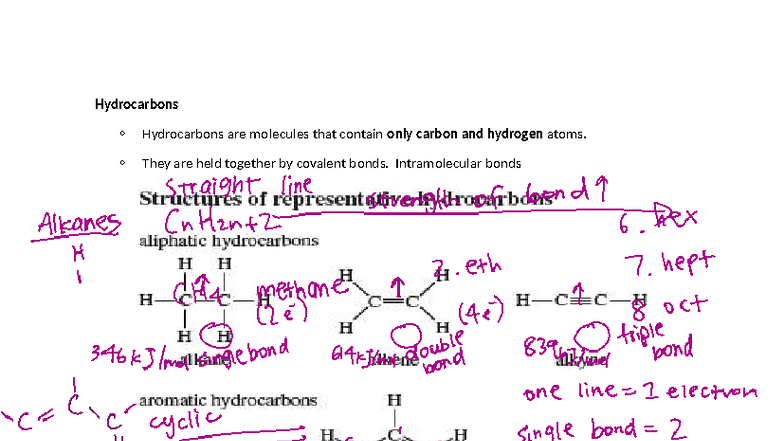 Hydrocarbons
Hydrocarbons are molecules that contain only carbon and hydrogen atoms.
They are held together by covalent bonds. Intramolecular bonds
straight line
Structures of representative hydrocarbons
strength of bond ↑
Alkanes
CnH2n+2
6. hex
aliphatic hydrocarbons
7. hept
8 oct
H
H H
H—C—C—H
H H
CH4 methane
2. eth
H H
C=C
H H
H—C≡C—H
(2 e⁻)
(4e⁻)
346 kJ/mol single bond
alkane
double bond
alkene
839
triple bond
alkyne
one line = 1 electron
aromatic hydrocarbons
H
C = C
C
cyclic
H C H
single bond = 2